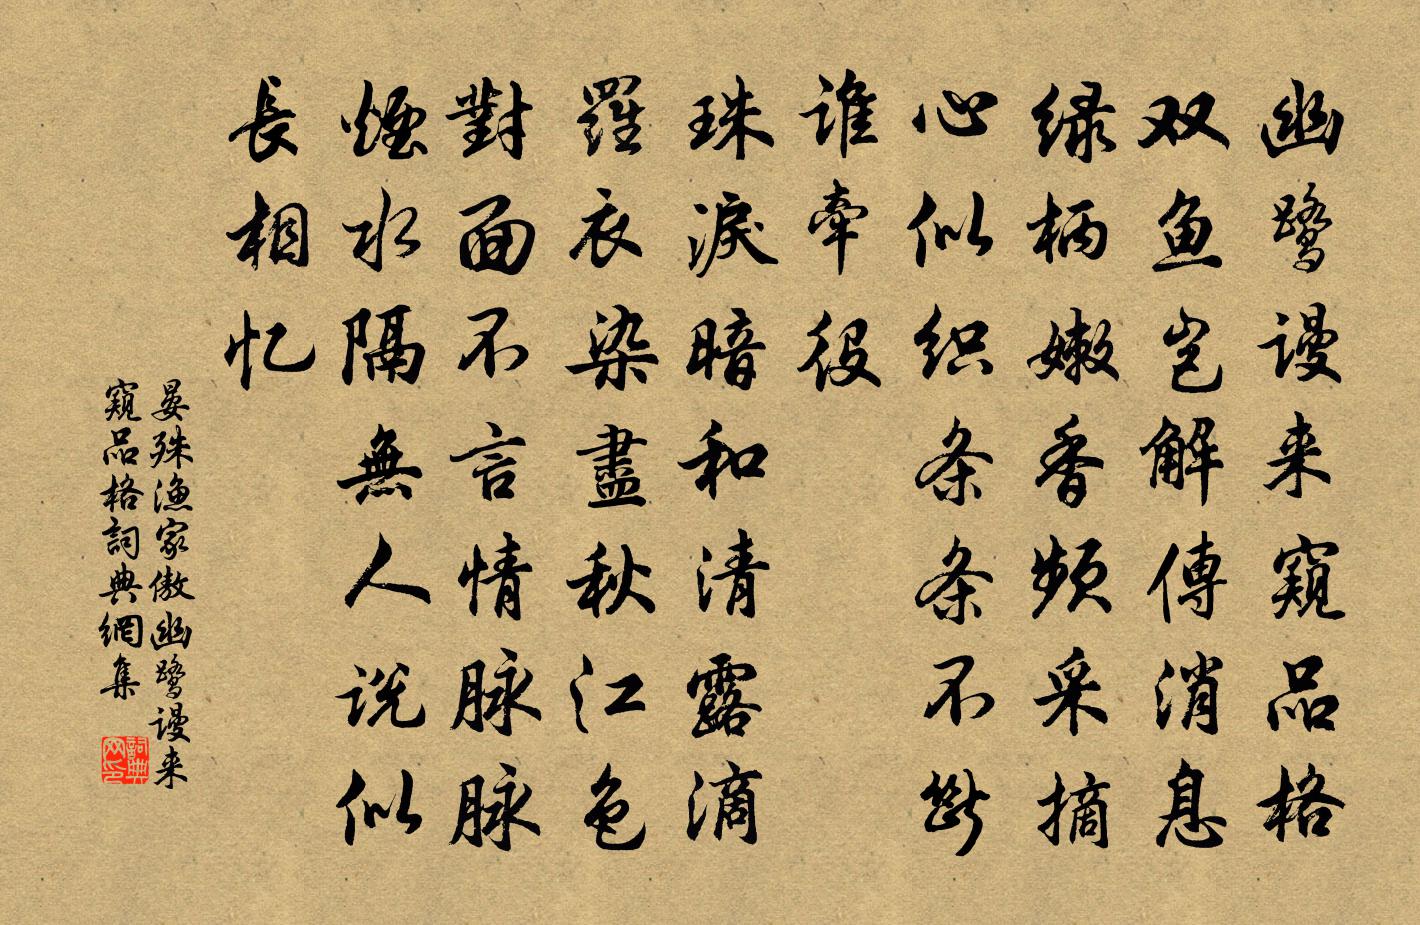 幽鹭谩来窥品格
双鱼岂解傳消息
绿柄嫩香频采摘
心似织条条不断
谁牵役
珠淚暗和清露滴
羅衣染盡秋江色
對面不言情脉脉
煙水隔無人说似
長相忆
晏殊渔家傲幽鹭谩来
窥品格詞典網集
詞典网印